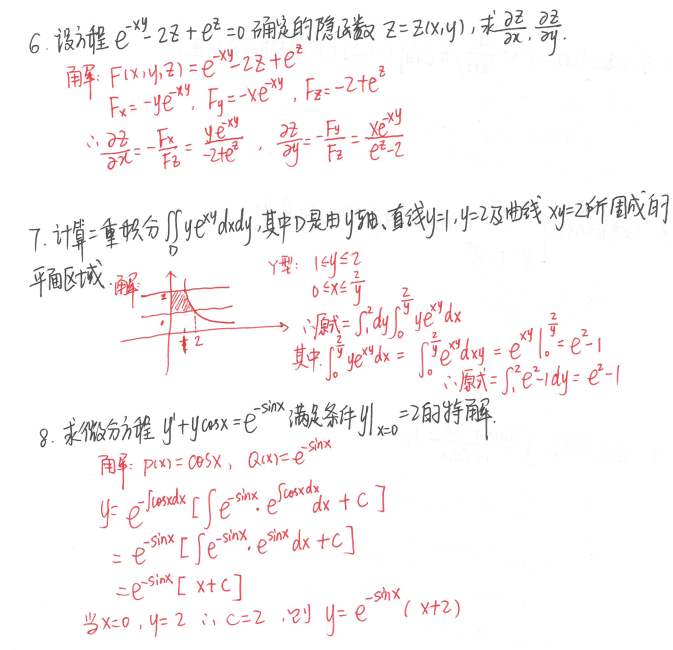 6. 设方程 e^{-xy}-2z+e^z=0 确定的隐函数 z=z(x,y), 求 ∂z/∂x, ∂z/∂y.
解: F(x,y,z)=e^{-xy}-2z+e^z
Fx=-ye^{-xy}, Fy=-xe^{-xy}, Fz=-2+e^z
∴ ∂z/∂x=-Fx/Fz=ye^{-xy}/(-2+e^z), ∂z/∂y=-Fy/Fz=xe^{-xy}/(e^z-2)
7. 计算二重积分 ∬_D ye^{xy}dxdy, 其中D是由y轴、直线y=1, y=2及曲线 xy=2所围成的
平面区域.
解:
2
1
1 2
Y型: 1≤y≤2
0≤x≤2/y
∴原式=∫_1^2 dy∫_0^{2/y} ye^{xy}dx
其中 ∫_0^{2/y} ye^{xy}dx = ∫_0^{2/y} e^{xy}dxy = e^{xy}|_0^{2/y} = e^2-1
∴原式=∫_1^2 e^2-1dy=e^2-1
8. 求微分方程 y'+ycosx=e^{-sinx} 满足条件 y|_{x=0}=2的特解.
解: P(x)=cosx, Q(x)=e^{-sinx}
y=e^{-∫cosxdx}[∫e^{-sinx}·e^{∫cosxdx}dx+C]
=e^{-sinx}[∫e^{-sinx}·e^{sinx}dx+C]
=e^{-sinx}[x+C]
当x=0, y=2 ∴C=2. 则 y=e^{-sinx}(x+2)